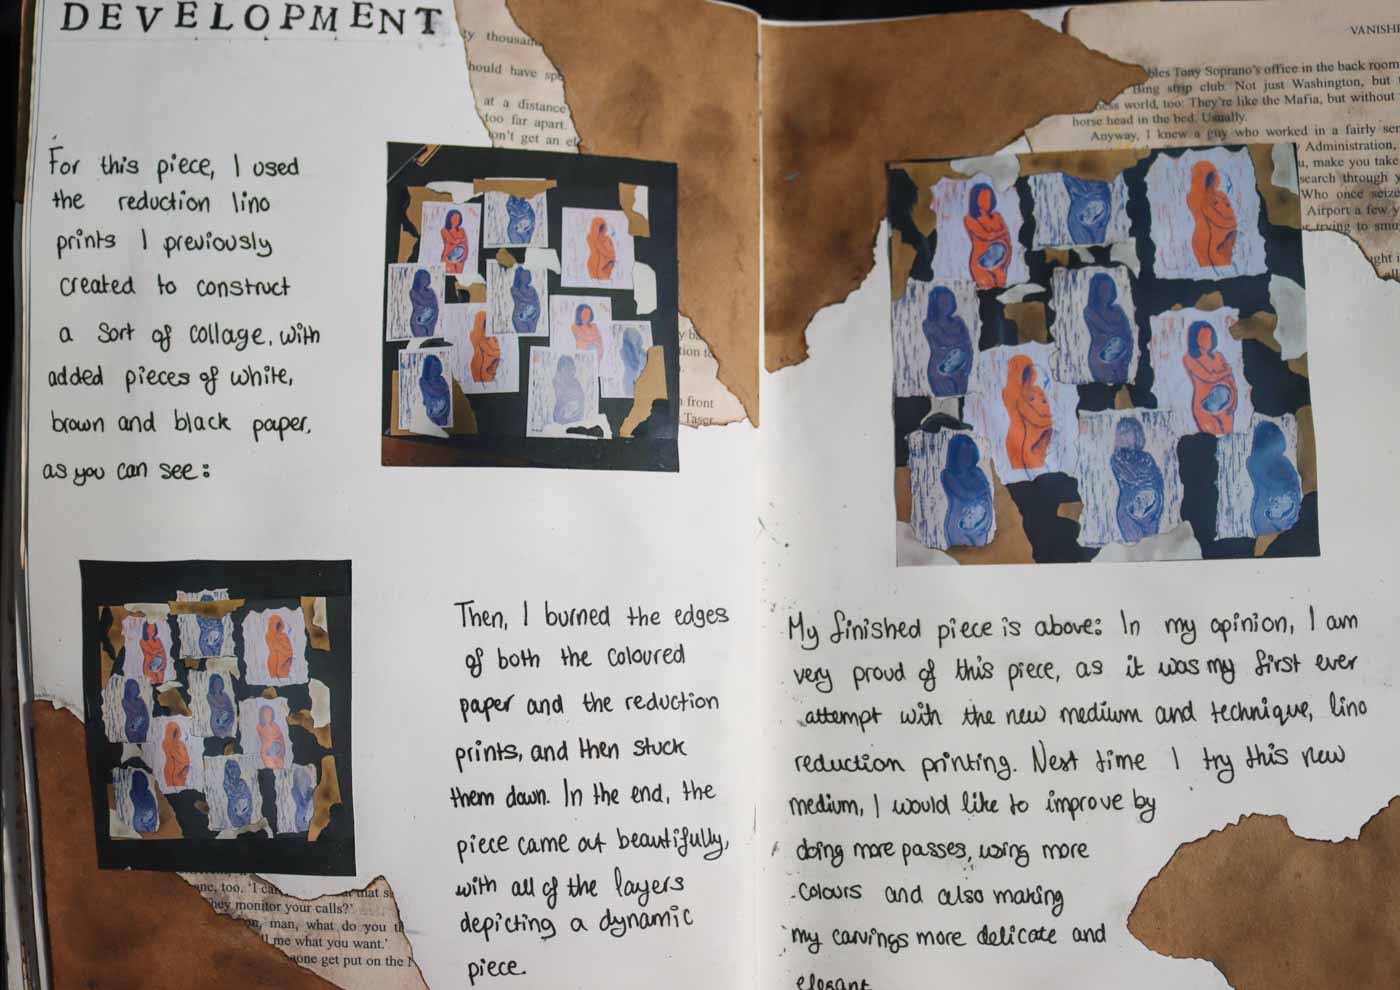 DEVELOPMENT
For this piece, I used
the reduction lino
prints I previously
created to construct
a sort of collage, with
added pieces of white,
brown and black paper,
as you can see:
Then, I burned the edges
of both the coloured
paper and the reduction
prints, and then stuck
them down. In the end, the
piece came out beautifully,
with all of the layers
depicting a dynamic
piece.
My finished piece is above: In my opinion, I am
very proud of this piece, as it was my first ever
attempt with the new medium and technique, lino
reduction printing. Next time I try this new
medium, I would like to improve by
doing more passes, using more
colours and also making
my carvings more delicate and
elegant
thousand
hould have
at a distance
too far apart.
on't get an
front
Taser
too. 'I
hey monitor your calls?'
man, what do you
me what you want.'
one get put on the
VANISHE
bles Tony Soprano's office in the back room
Bing strip club. Not just Washington, but
world, too: They're like the Mafia, but without
horse head in the bed. Usually.
Anyway, I knew a guy who worked in a fairly
Administration,
make you take
search through
Who once
Airport a few
trying to